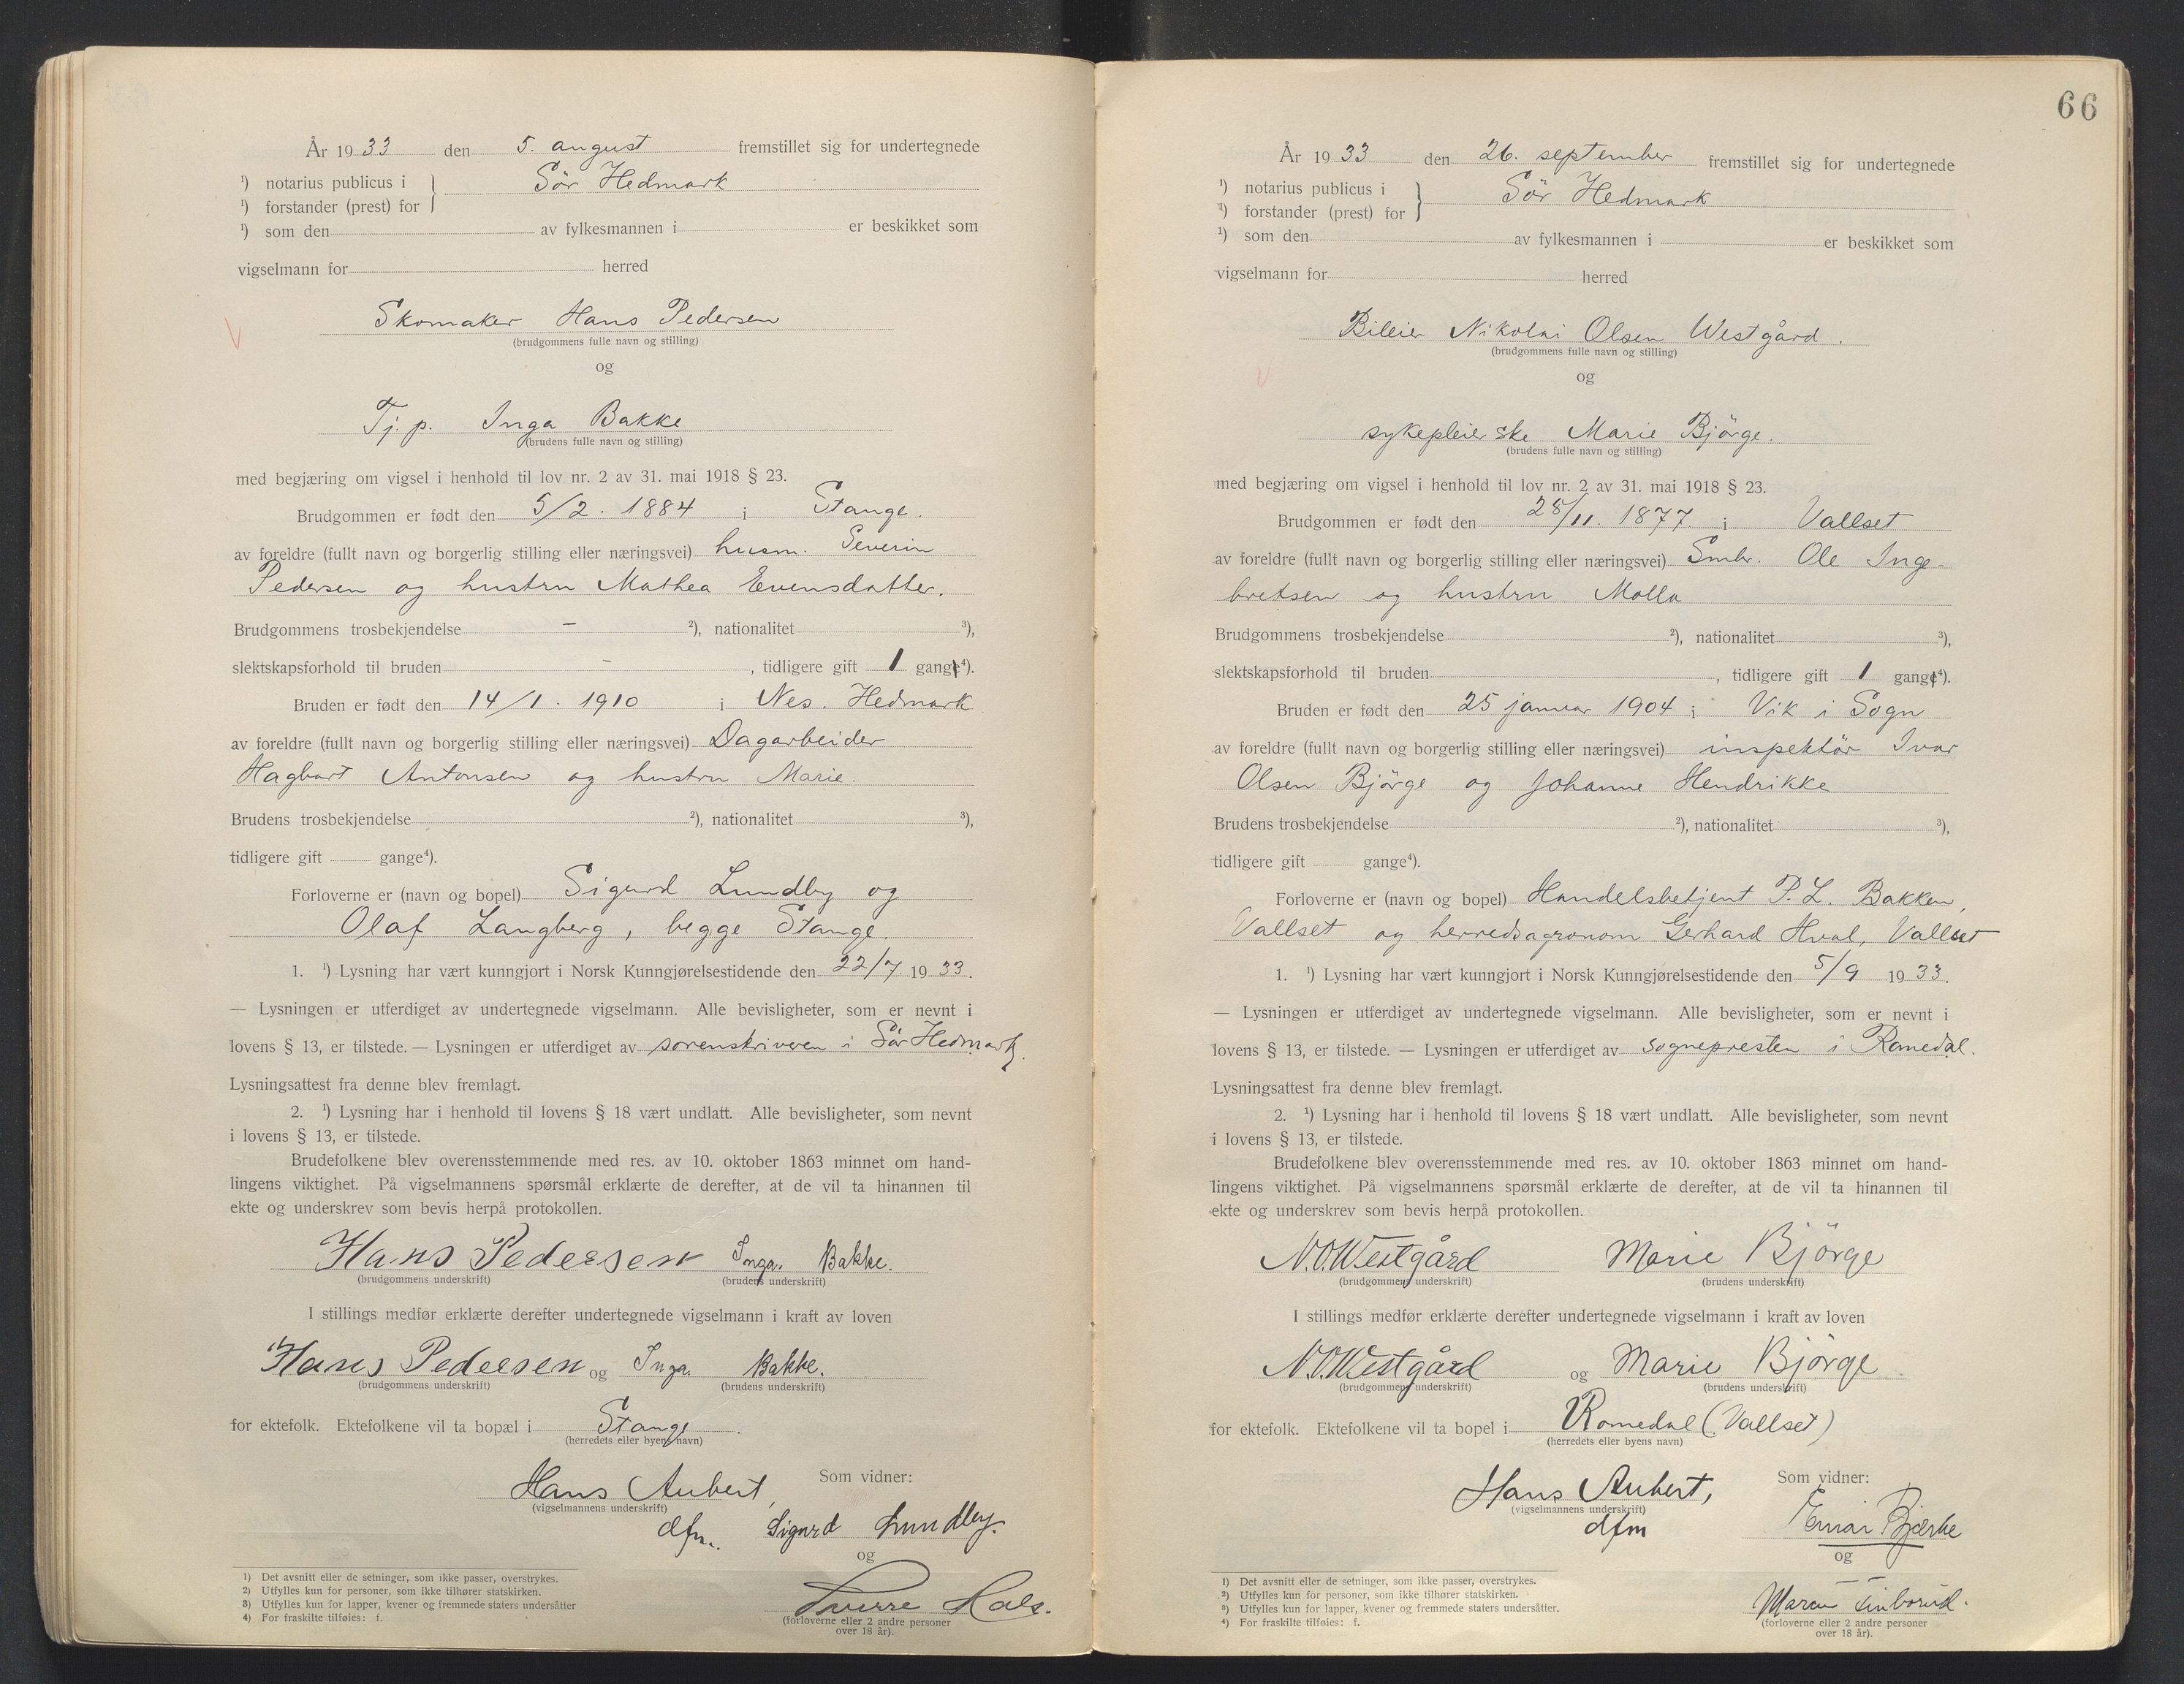 År 1933 den 5. august fremstillet sig for undertegnede
¹) notarius publicus i } Sör Hedmark
¹) forstander (prest) for
¹) som den av fylkesmannen i er beskikket som
vigselmann for herred
Skomaker Hans Pedersen
(brudgommens fulle navn og stilling)
V
og
Tj. p. Inga Bakke
(brudens fulle navn og stilling)
med begjæring om vigsel i henhold til lov nr. 2 av 31. mai 1918 § 23.
Brudgommen er født den 5/2. 1884 i Stange.
av foreldre (fullt navn og borgerlig stilling eller næringsvei) husm. Severin
Pedersen og hustru Mathea Evensdatter.
Brudgommens trosbekjendelse - ²), nationalitet ³),
slektskapsforhold til bruden - , tidligere gift 1 gang⁴).
Bruden er født den 14/1. 1910 i Nes. Hedmark
av foreldre (fullt navn og borgerlig stilling eller næringsvei) Dagarbeider
Hagbart Antonsen og hustru Marie.
Brudens trosbekjendelse ²), nationalitet ³),
tidligere gift gange⁴).
Forloverne er (navn og bopel) Sigurd Lundby og
Olaf Langberg, begge Stange.
1. ¹) Lysning har vært kunngjort i Norsk Kunngjørelsestidende den 22/7. 1933.
— Lysningen er utferdiget av undertegnede vigselmann. Alle bevisligheter, som er nevnt i
lovens § 13, er tilstede. — Lysningen er utferdiget av sorenskriveren i Sör Hedmark.
Lysningsattest fra denne blev fremlagt.
2. ¹) Lysning har i henhold til lovens § 18 vært undlatt. Alle bevisligheter, som nevnt
i lovens § 13, er tilstede.
Brudefolkene blev overensstemmende med res. av 10. oktober 1863 minnet om hand-
lingens viktighet. På vigselmannens spørsmål erklærte de derefter, at de vil ta hinannen til
ekte og underskrev som bevis herpå protokollen.
Hans Pedersen Inga Bakke.
(brudgommens underskrift) (brudens underskrift)
I stillings medfør erklærte derefter undertegnede vigselmann i kraft av loven
Hans Pedersen og Inga Bakke.
(brudgommens underskrift) (brudens underskrift)
for ektefolk. Ektefolkene vil ta bopæl i Stange.
(herredets eller byens navn)
Hans Aubert, Som vidner:
(vigselmannens underskrift)
dfm. Sigurd Lundby.
og
Sverre Hals.
(forloverne eller 2 andre personer
over 18 år).
1) Det avsnitt eller de setninger, som ikke passer, overstrykes.
2) Utfylles kun for personer, som ikke tilhører statskirken.
3) Utfylles kun for lapper, kvener og fremmede staters undersåtter
4) For fraskilte tilføies: f.
66
År 1933 den 26. september fremstillet sig for undertegnede
¹) notarius publicus i } Sör Hedmark
¹) forstander (prest) for
¹) som den av fylkesmannen i er beskikket som
vigselmann for herred
Bileier Nikolai Olsen Westgård.
(brudgommens fulle navn og stilling)
V
og
sykepleierske Marie Björge.
(brudens fulle navn og stilling)
med begjæring om vigsel i henhold til lov nr. 2 av 31. mai 1918 § 23.
Brudgommen er født den 28/11. 1877 i Vallset
av foreldre (fullt navn og borgerlig stilling eller næringsvei) Smbr. Ole Inge-
bretsen og hustru Molla
Brudgommens trosbekjendelse ²), nationalitet ³),
slektskapsforhold til bruden , tidligere gift 1 gang⁴).
Bruden er født den 25 januar 1904 i Vik i Sogn
av foreldre (fullt navn og borgerlig stilling eller næringsvei) inspektör Ivar
Olsen Björge og Johanne Hendrikke
Brudens trosbekjendelse ²), nationalitet ³),
tidligere gift gange⁴).
Forloverne er (navn og bopel) Handelsbetjent P. L. Bakken,
Vallset og herredsagronom Gerhard Hval, Vallset
1. ¹) Lysning har vært kunngjort i Norsk Kunngjørelsestidende den 5/9 1933.
— Lysningen er utferdiget av undertegnede vigselmann. Alle bevisligheter, som er nevnt i
lovens § 13, er tilstede. — Lysningen er utferdiget av sognepresten i Romedal.
Lysningsattest fra denne blev fremlagt.
2. ¹) Lysning har i henhold til lovens § 18 vært undlatt. Alle bevisligheter, som nevnt
i lovens § 13, er tilstede.
Brudefolkene blev overensstemmende med res. av 10. oktober 1863 minnet om hand-
lingens viktighet. På vigselmannens spørsmål erklærte de derefter, at de vil ta hinannen til
ekte og underskrev som bevis herpå protokollen.
N.O. Westgård Marie Björge
(brudgommens underskrift) (brudens underskrift)
I stillings medfør erklærte derefter undertegnede vigselmann i kraft av loven
N.O. Westgård og Marie Björge
(brudgommens underskrift) (brudens underskrift)
for ektefolk. Ektefolkene vil ta bopel i Romedal (Vallset)
(herredets eller byens navn)
Hans Aubert, Som vidner:
(vigselmannens underskrift)
dfm Einar Bjerke
og
(forloverne eller 2 andre personer
over 18 år).
1) Det avsnitt eller de setninger, som ikke passer, overstrykes.
2) Utfylles kun for personer, som ikke tilhører statskirken.
3) Utfylles kun for lapper, kvener og fremmede staters undersåtter.
4) For fraskilte tilføies: f.